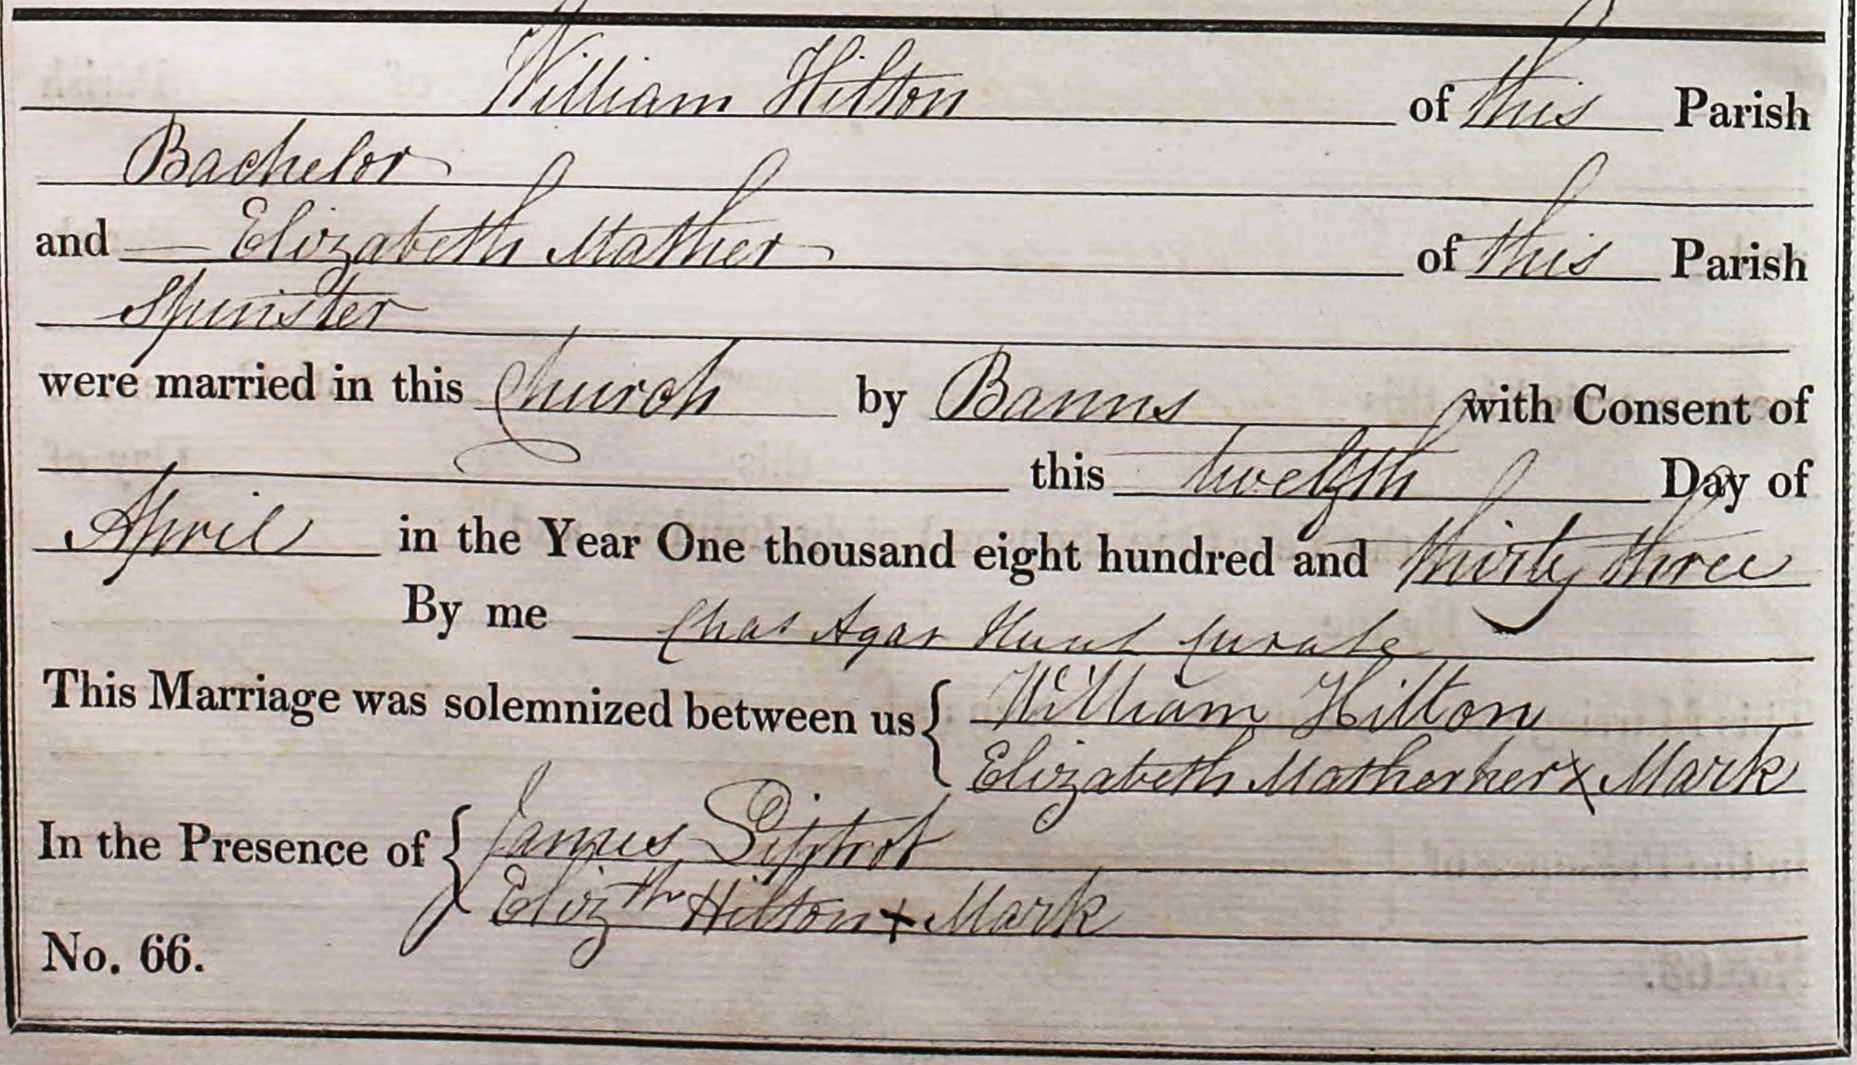 William Hilton of this Parish
Bachelor
and — Elizabeth Mather of this Parish
Spinster
were married in this Church by Banns with Consent of
this twelfth Day of
April in the Year One thousand eight hundred and thirty three
By me Chas Agar Hunt Curate
This Marriage was solemnized between us { William Hilton
Elizabeth Mather her X Mark
In the Presence of { James
Elizth Hilton X Mark
No. 66.